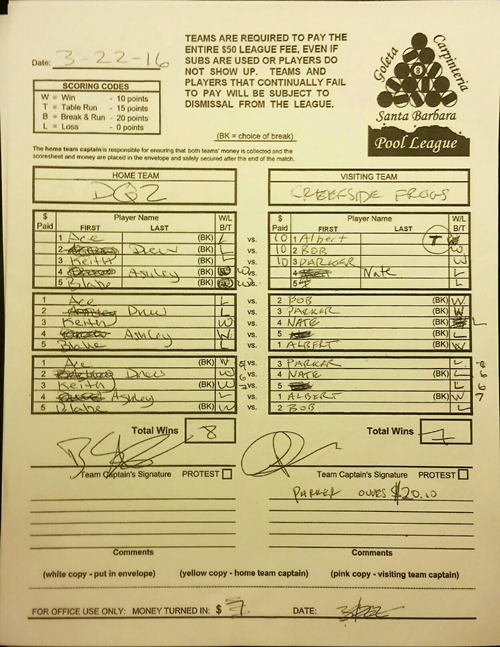 Date: 3-22-16
TEAMS ARE REQUIRED TO PAY THE
ENTIRE $50 LEAGUE FEE, EVEN IF
SUBS ARE USED OR PLAYERS DO
NOT SHOW UP. TEAMS AND
PLAYERS THAT CONTINUALLY FAIL
TO PAY WILL BE SUBJECT TO
DISMISSAL FROM THE LEAGUE.
Goleta Carpinteria
8
Santa Barbara
Pool League
SCORING CODES
W = Win - 10 points
T = Table Run - 15 points
B = Break & Run - 20 points
L = Loss - 0 points
(BK = choice of break)
The home team captain is responsible for ensuring that both teams' money is collected and the
scoresheet and money are placed in the envelope and safely secured after the end of the match.
HOME TEAM VISITING TEAM
DQ2 CREEKSIDE FROGS
$ Paid Player Name FIRST LAST W/L B/T
$ Paid Player Name FIRST LAST W/L B/T
1 Ace (BK) L vs. 10 1 Albert T
2 Drew (BK) L vs. 10 2 BOB W
3 Keith (BK) L vs. 10 3 PARKER W
4 Ashley (BK) W vs. 4 Nate L
5 Blake (BK) W vs. 5 L
1 Ace L vs. 2 BOB (BK) W
2 Drew L vs. 3 PARKER (BK) W
3 Keith W vs. 4 NATE (BK) L
4 Ashley W vs. 5 (BK) L
5 Blake L vs. 1 ALBERT (BK) W
1 Ace (BK) W vs. 3 PARKER L
2 Drew (BK) W vs. 4 NATE L
3 Keith (BK) W vs. 5 L
4 Ashley (BK) L vs. 1 ALBERT W 7
5 Blake (BK) W vs. 2 BOB L
Total Wins 8 Total Wins 7
Team Captain's Signature PROTEST Team Captain's Signature PROTEST
PARKER OWES $20.00
Comments Comments
(white copy - put in envelope) (yellow copy - home team captain) (pink copy - visiting team captain)
FOR OFFICE USE ONLY: MONEY TURNED IN: $ DATE: